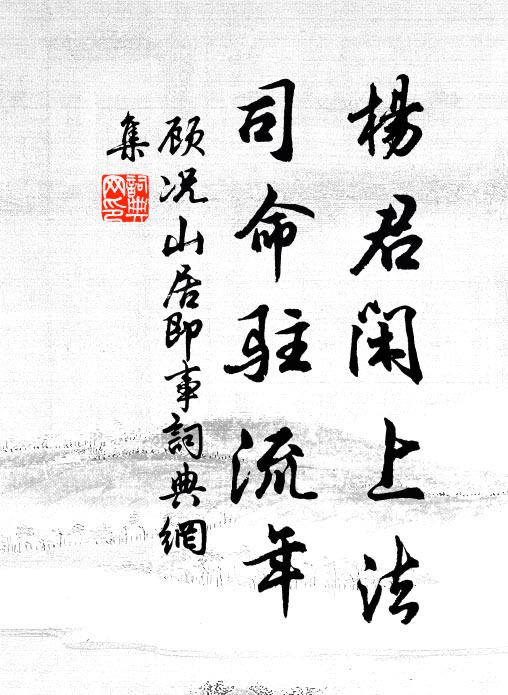 楊君閑上法
司命駐流年
顾况山居即事詞典網
集
詞典
网印